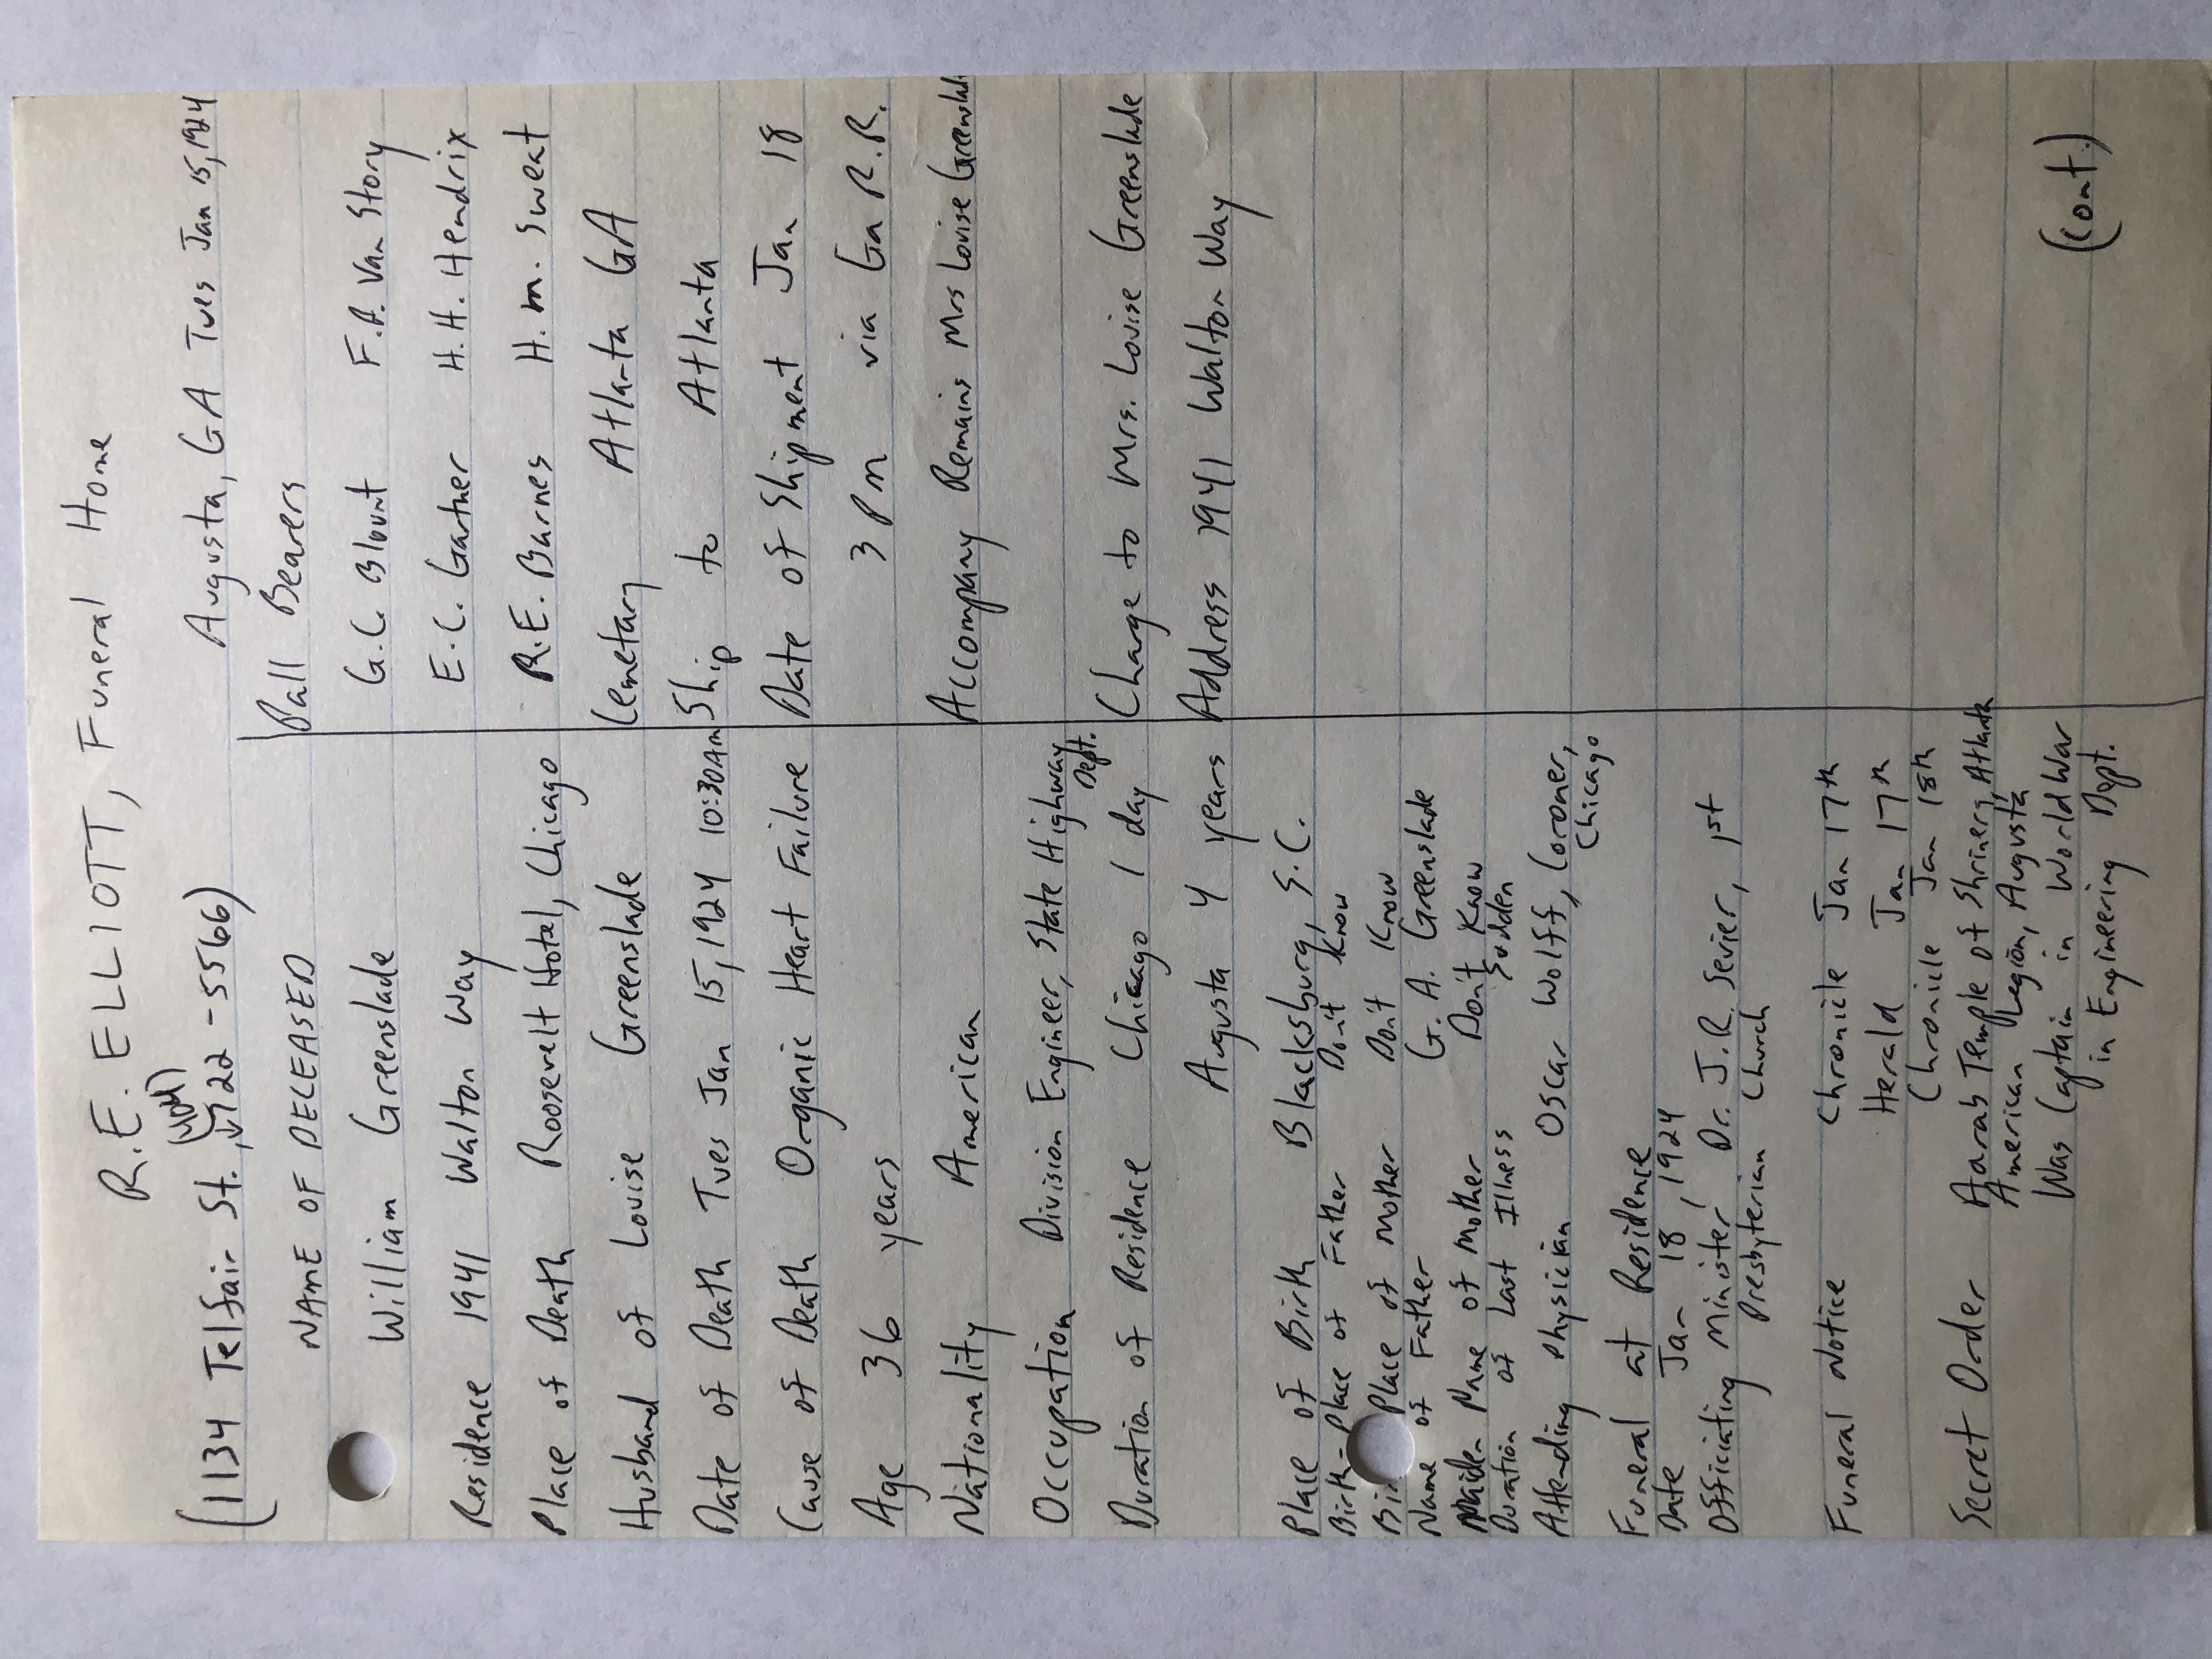 R.E. ELLIOTT, Funeral Home
(1134 Telfair St., (404) 722-5566)
Augusta, GA Tues Jan 15, 1924
NAME OF DECEASED
William Greenslade
Residence 1941 Walton Way
Place of Death Roosevelt Hotel, Chicago
Husband of Louise Greenslade
Date of Death Tues Jan 15, 1924 10:30AM
Cause of Death Organic Heart Failure
Age 36 years
Nationality American
Occupation Division Engineer, State Highway
Dept.
Duration of Residence Chicago 1 day
Augusta 4 years
Place of Birth Blacksburg, S.C.
Birth-Place of Father Don't Know
Bir Place of Mother Don't Know
Name of Father G. A. Greenslade
Maiden Name of Mother Don't Know
Duration of Last Illness Sudden
Attending Physician Oscar Wolff, Coroner,
Chicago
Funeral at Residence
Date Jan 18, 1924
Officiating Minister Dr. J.R. Sevier, 1st
Presbyterian Church
Funeral Notice Chronicle Jan 17th
Herald Jan 17th
Chronicle Jan 18th
Secret Order Aarab Temple of Shriners, Atlanta
American Legion, Augusta
Was Captain in World War
in Engineering Dept.
Pall Bearers
G.C. Blount F.A. Van Story
E.C. Gartner H.H. Hendrix
R.E. Barnes H.M. Sweat
Cemetary Atlanta GA
Ship to Atlanta
Date of Shipment Jan 18
3 PM via Ga R.R.
Accompany Remains Mrs Louise Greenslade
Charge to Mrs. Louise Greenslade
Address 1941 Walton Way
(cont.)